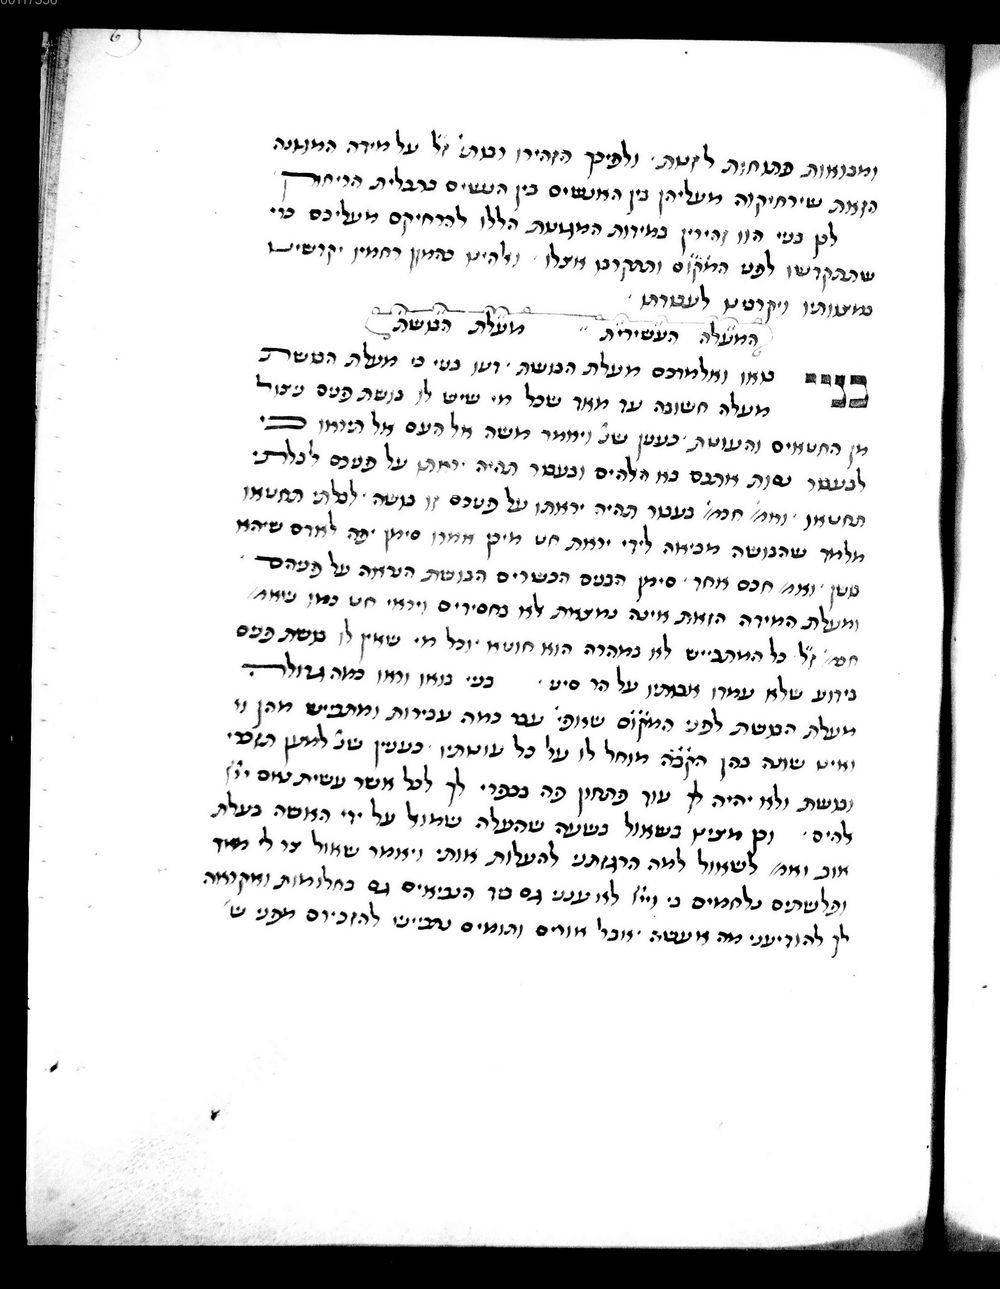 ומבואות פתוחות לזנות ולפיכך הזהירו רבותי' ז"ל על מידה המגונה
הזאת שירחיקוה מעליהן בין האנשים בין הנשים כתכלית הריחוק
לכן בניי הוו זהירין במידות המגונות הללו להרחיקם מעליכם כדי
שתתקדשו לפני המקום ותתקרבו אצלו ואלהים בהמון רחמיו יקדשינו
במצותיו ויקרבינו לעבודתו
המעלה העשירית מעלת הבושת
בניי בואו ואלמדכם מעלת הבושת דעו בניי כי מעלת הבושת
מעלה חשובה עד מאד שכל מי שיש לו בושת פנים ניצול
מן החטאים והעונות כענין שנ' ויאמר משה אל העם אל תיראו כי
לבעבור נסות אתכם בא האלהים ובעבור תהיה יראתו על פניכם לבלתי
תחטאו ואמ' חכמ' בעבור תהיה יראתו על פניכם זו בושה לבלתי תחטאו
מלמד שהבושה מביאה לידי יראת חט מיכן אמרו סימן יפה לאדם שיהא
ביישן ואמ' חכם אחד סימן הבנים הכשרים הבושת הנראה על פניהם
ומעלת המידה הזאת אינה נמצאת לא בחסידים ויראי חט כמו שאמ'
חכמ' ז"ל כל המתבייש לא במהרה הוא חוטא וכל מי שאין לו בושת פנים
בידוע שלא עמדו אבותיו על הר סיני בניי בואו וראו כמה גדולה
מעלת הבושת לפני המקום שאפי' עבר כמה עבירות ומתבייש מהן
ואינו שונה בהן הקב"ה מוחל לו על כל עונותיו כענין שנ' למען תזכרי
ובושת ולא יהיה לך עוד פתחון פה בכפרי לך לכל אשר עשית נאם יי'
להים וכן מצינו בשאול בשעה שהעלה שמואל על ידי האשה בעלת
אוב ואמ' לשאול למה הרגזתני להעלות אותי ויאמר שאול צר לי מאד
ופלשתים נלחמים בי ויי' לא ענני גם ביד הנביאים גם בחלומות ואקראה
לך להודיעני מה אעשה אבל אורים ותומים נתבייש להזכירם מפני ש'